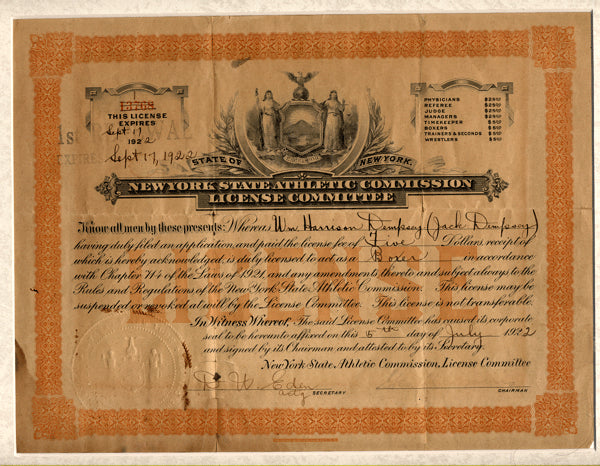 13768
THIS LICENSE
EXPIRES
Sept. 17
1922
Sept 17, 1922
EXPIRES
PHYSICIANS $25.00
REFEREE $25.00
JUDGE $25.00
MANAGERS $25.00
TIMEKEEPER $25.00
BOXERS $5.00
TRAINERS & SECONDS $5.00
WRESTLERS $5.00
STATE OF NEW YORK.
NEW YORK STATE ATHLETIC COMMISSION
LICENSE COMMITTEE
Know all men by these presents: Whereas Wm Harrison Dempsey (Jack Dempsey)
having duly filed an application, and paid the license fee of Five Dollars, receipt of
which is hereby acknowledged, is duly licensed to act as a Boxer in accordance
with Chapter 714 of the Laws of 1921, and any amendments thereto and subject always to the
Rules and Regulations of the New York State Athletic Commission. This license may be
suspended or revoked at will by the License Committee. This license is not transferable.
In Witness Whereof, The said License Committee has caused its corporate
seal to be hereunto affixed on this 5th day of July 1922
and signed by its Chairman and attested to by its Secretary.
New York State Athletic Commission, License Committee
D. W. Eden
actg SECRETARY
CHAIRMAN